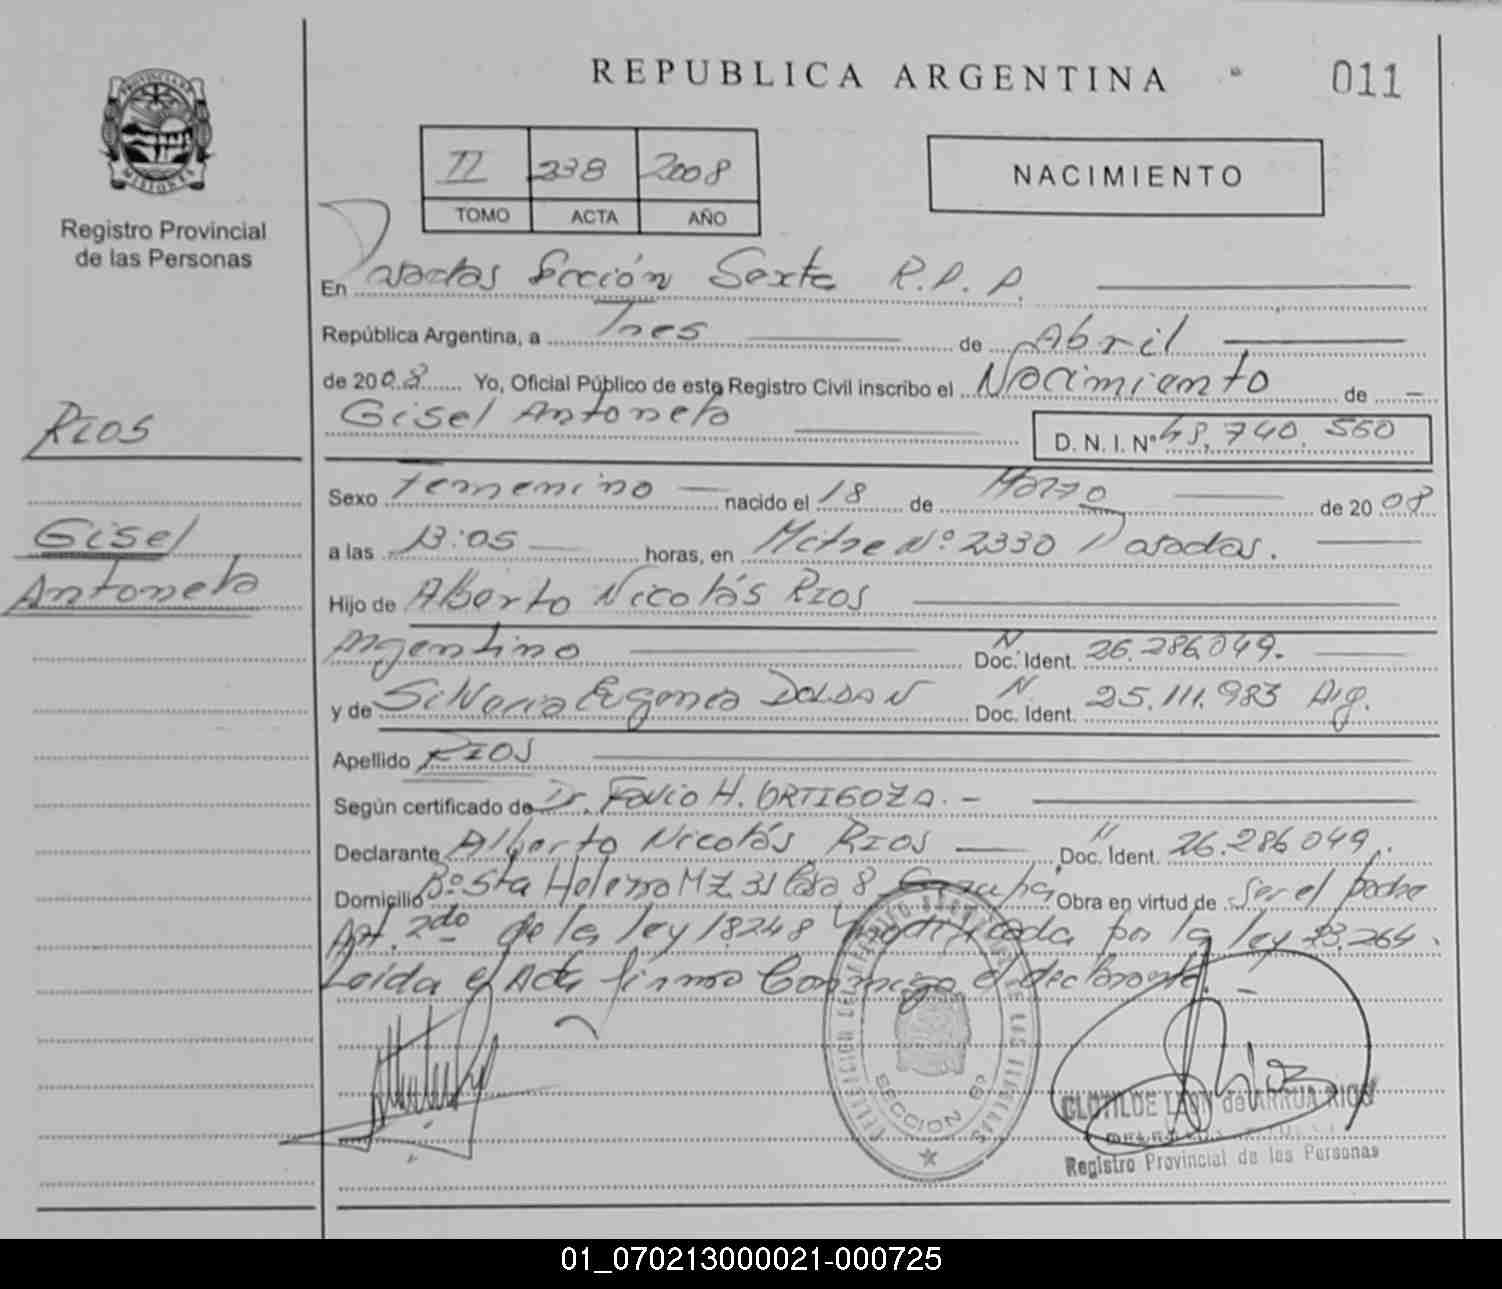 REPUBLICA ARGENTINA
011
PROVINCIA DE
MISIONES
Registro Provincial
de las Personas
II 238 2008
TOMO ACTA AÑO
NACIMIENTO
En Posadas Sección Sexta R.P.P.
República Argentina, a Tres de Abril
de 2008 Yo, Oficial Público de este Registro Civil inscribo el Nacimiento de
Gisel Antonela
D. N. I. Nº 48.740.560
RIOS
Gisel
Antonela
Sexo Femenino nacido el 18 de Marzo de 2008
a las 13:05 horas, en Mitre Nº 2330 Posadas.
Hijo de Alberto Nicolás RIOS
Argentino Doc. Ident. N 26.286.049.
y de Silvana Eugenia DOLDAN Doc. Ident. N 25.111.983 Arg.
Apellido RIOS
Según certificado de Dr. Favio H. ORTIGOZA.-
Declarante Alberto Nicolás RIOS Doc. Ident. N 26.286.049.
Domicilio Bº Sta Helena MZ 31 Casa 8 Garupá Obra en virtud de Ser el padre
Art. 2do de la ley 18248 modificada por la ley 23.264.
Leida el Acta firma Conmigo el declarante.-
SECCION 6ª
CLOTILDE LEON de ARRUA RIOS
Registro Provincial de las Personas
01_070213000021-000725